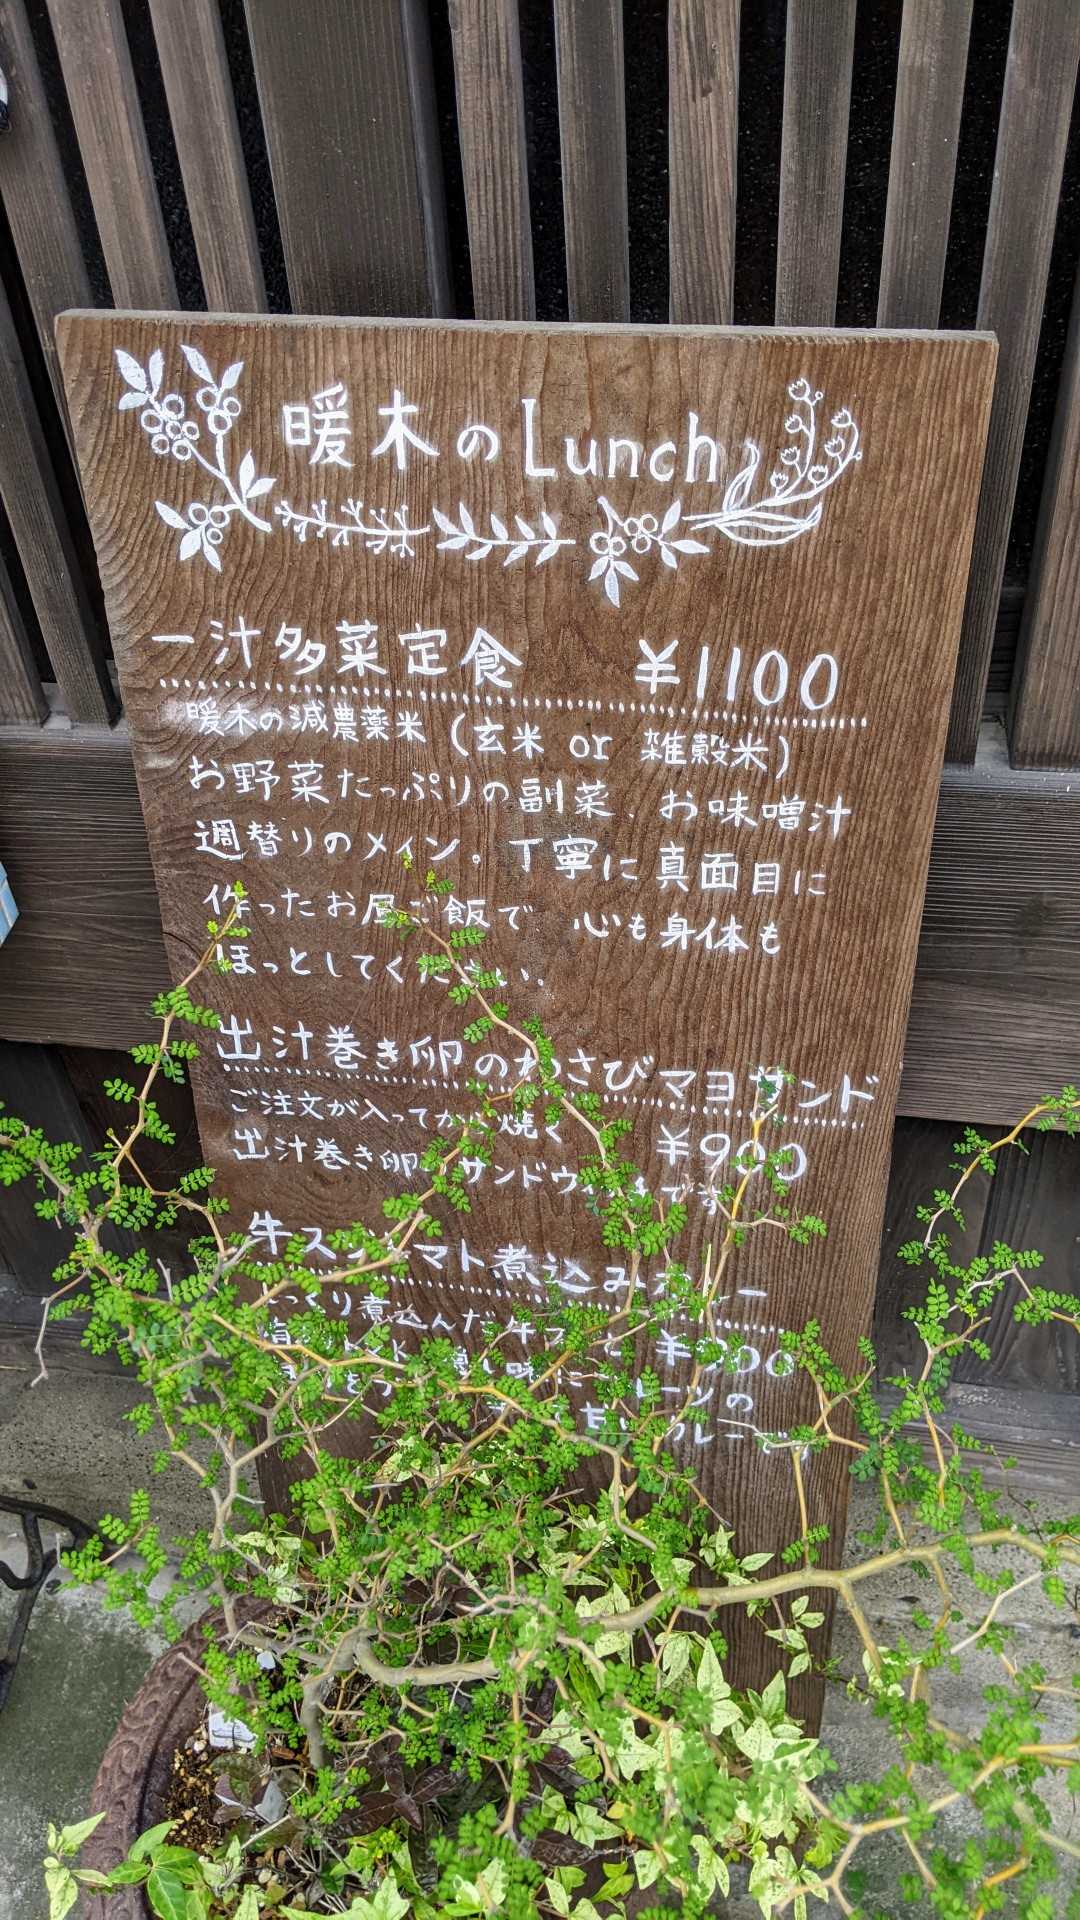 暖木のLunch
一汁多菜定食 ¥1100
暖木の減農薬米(玄米 or 雑穀米)
お野菜たっぷりの副菜、お味噌汁
週替りのメイン。丁寧に真面目に
作ったお昼ご飯で 心も身体も
ほっとしてください。
出汁巻き卵のわさびマヨサンド
ご注文が入ってから焼く ¥900
出汁巻き卵 サンドウィッチです
牛スジトマト煮込みカレー
じっくり煮込んだ牛ス と ¥900
トマト 隠し味に フルーツの
甘い カレーです